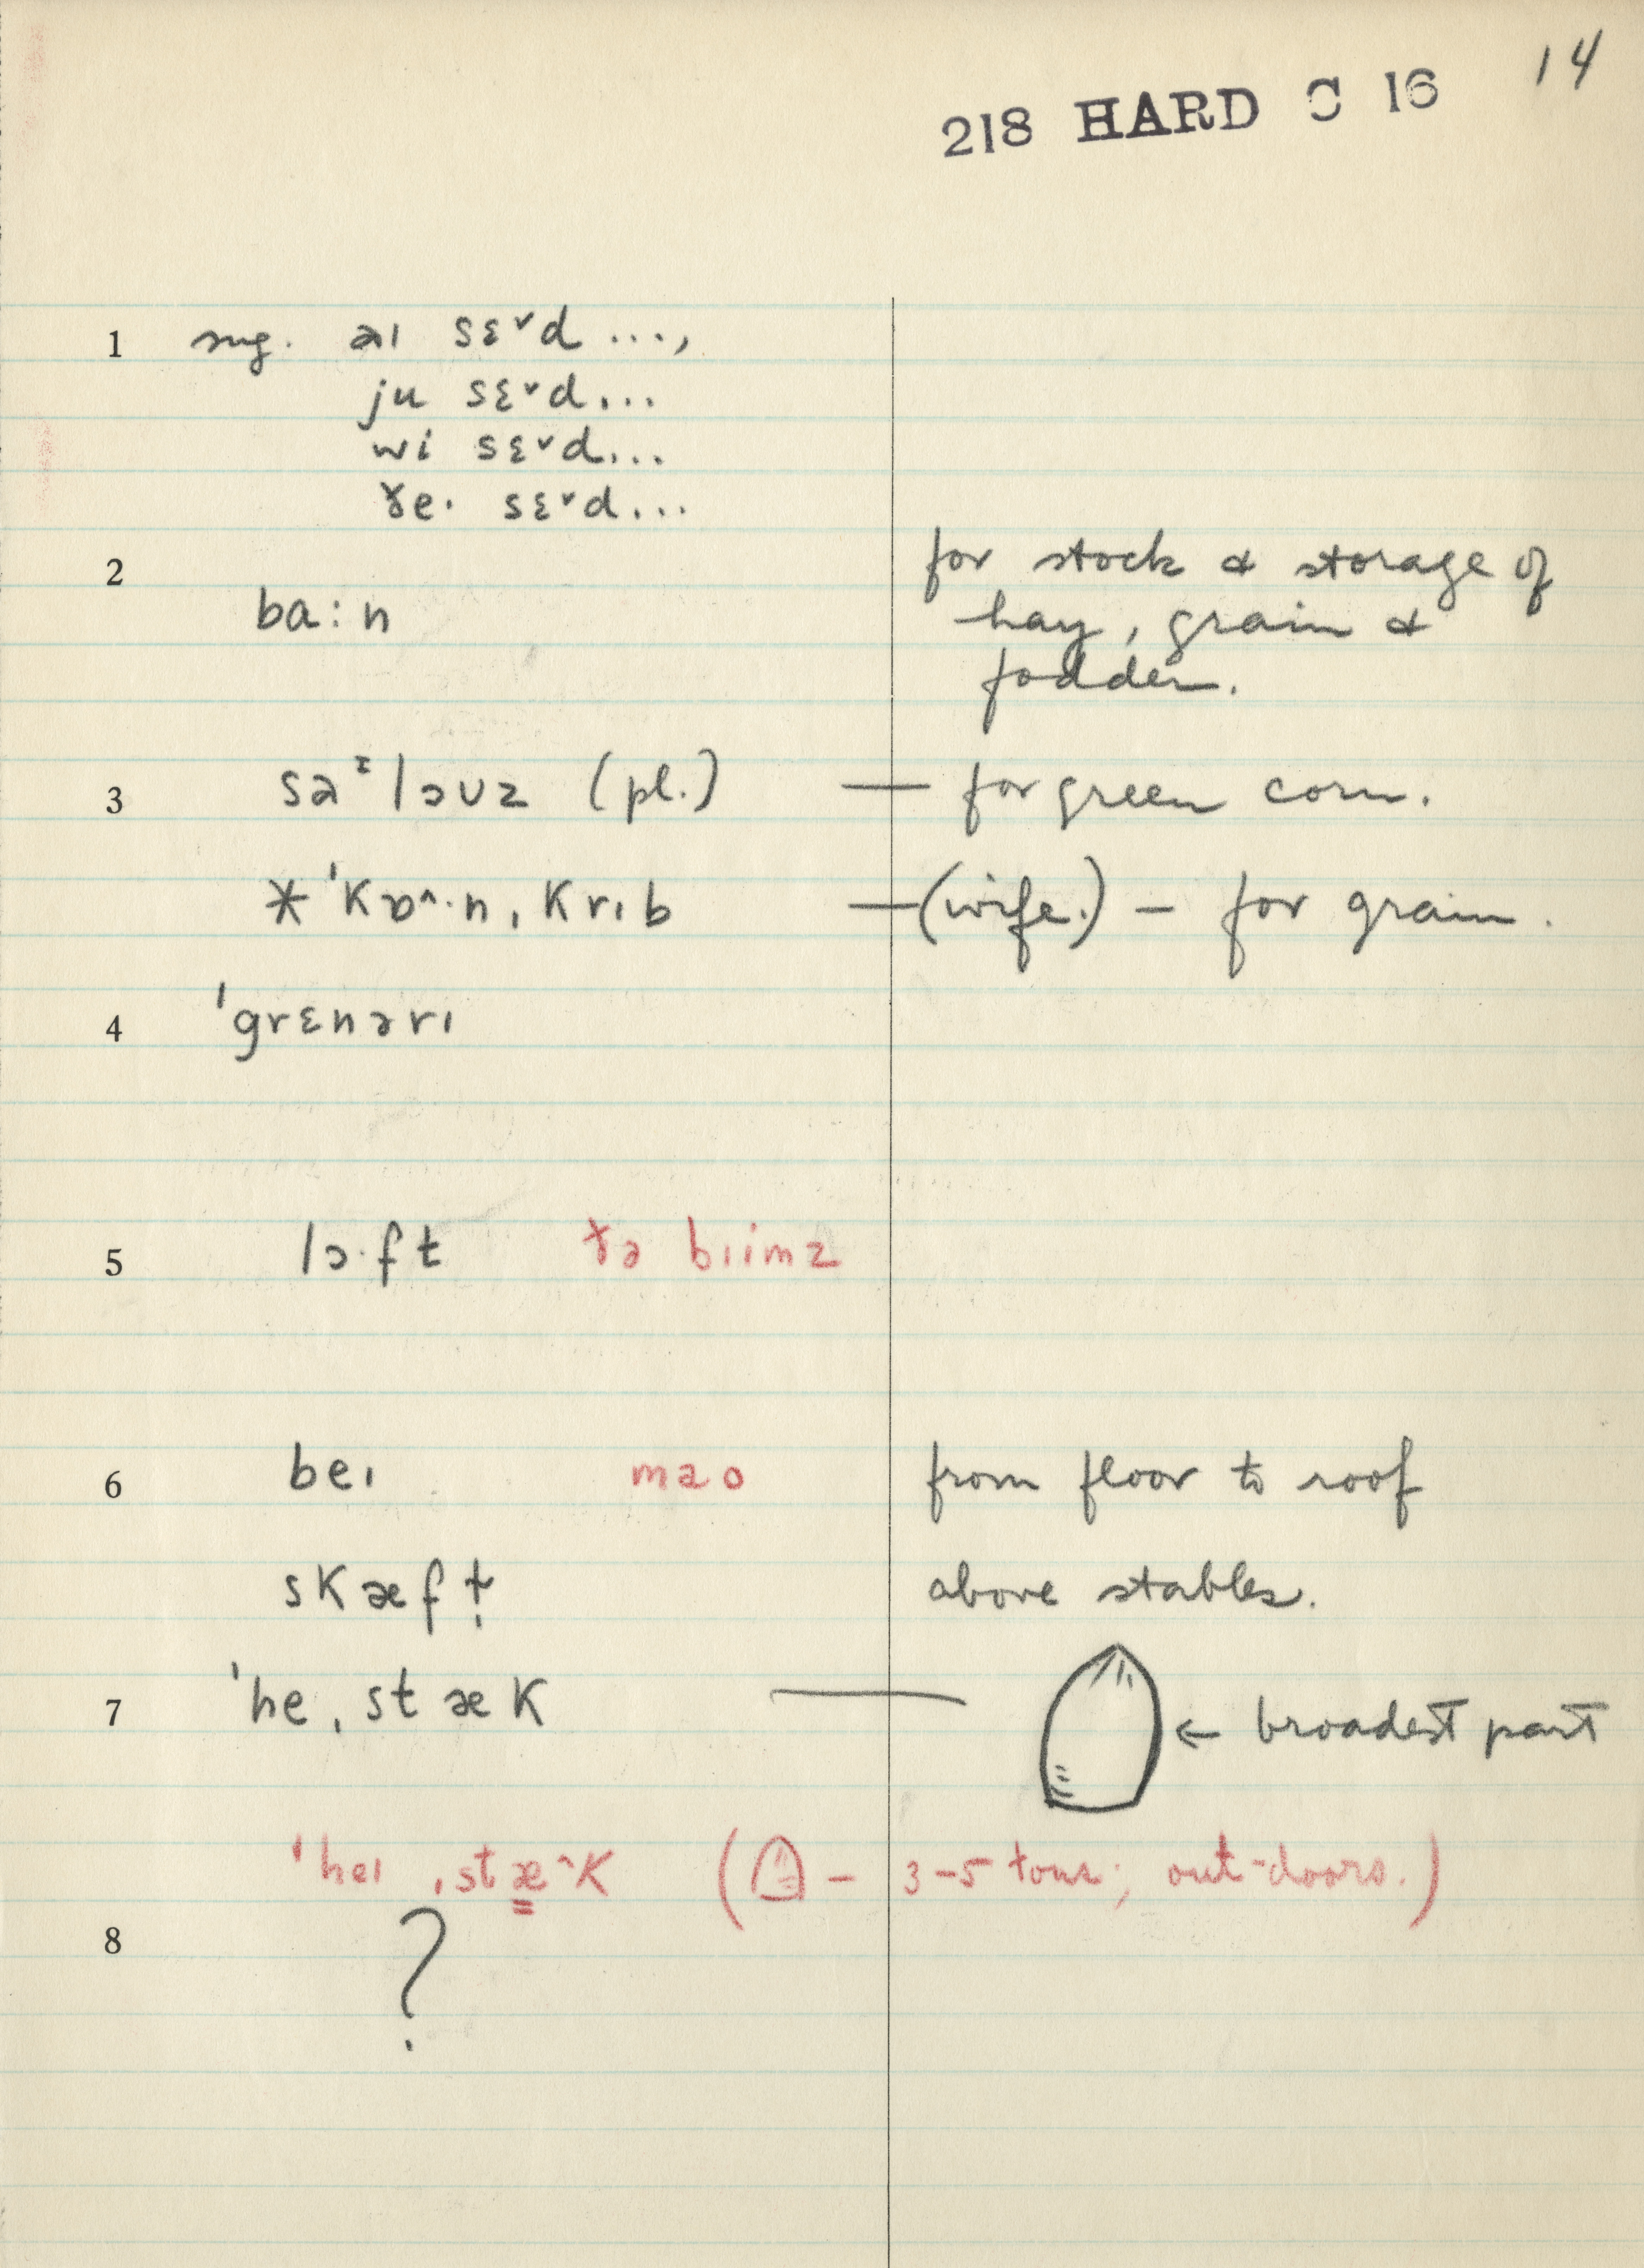 14
218 HARD C 16
1 sug. əɪ sɛ˅d ...,
ju sɛ˅d...
wi sɛ˅d...
ðe· sɛ˅d...
2 for stock & storage of
ba:n hay, grain &
fodder.
3 sə ᶦlɔʊz (pl.) — for green corn.
* ˈkɒ^·n ˌkrɪb — (wife.) — for grain.
4 ˈgrɛnərɪ
5 lɔ·ft ðə bɪimz
6 beɪ mao from floor to roof
skæfɬ above stables.
7 ˈhe ˌstæk — ← broadest part
ˈheɪ ˌstæ^k ( — 3-5 tons; out-doors.)
8 ?